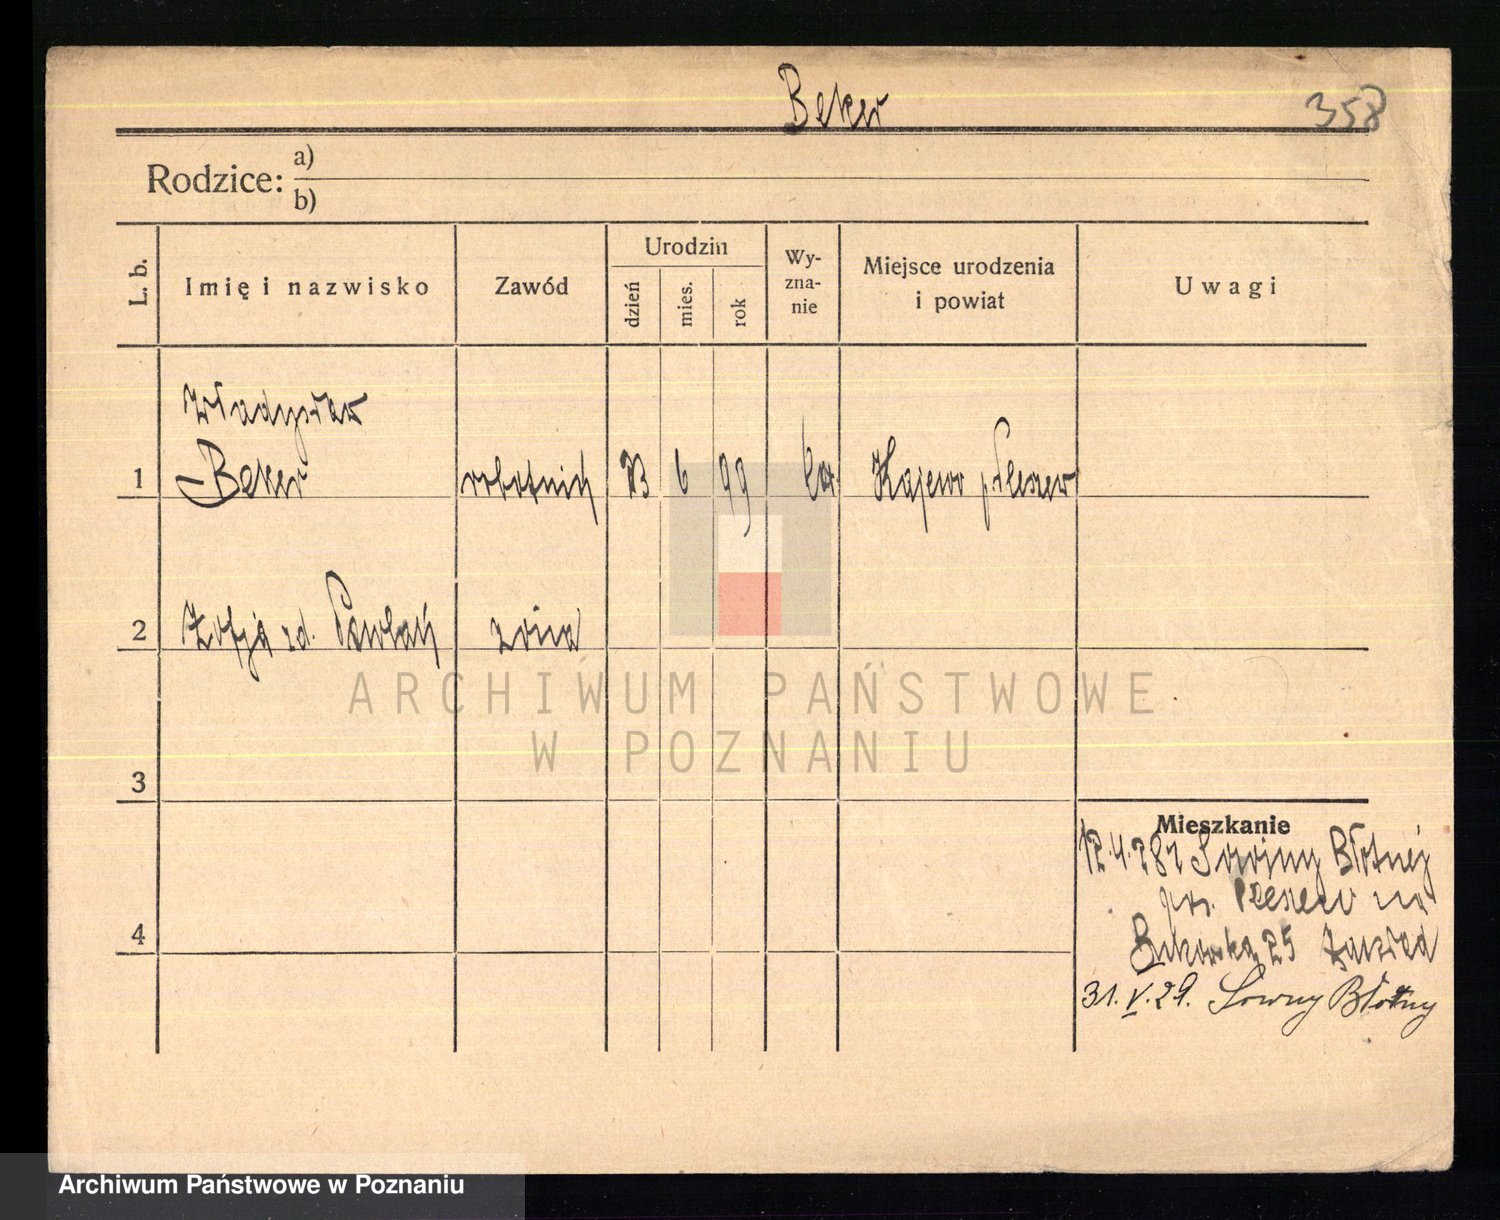 Beker
358
Rodzice: a)
b)
L. b.
Imię i nazwisko
Zawód
Urodzin
dzień
mies.
rok
Wy-
zna-
nie
Miejsce urodzenia
i powiat
Uwagi
Władysław
1 Beker robotnik 23 6 99 kat Kajewo p Pleszew
2 Zofja zd. żona
3
4
Mieszkanie
12.4.28 z Sowiny Błotnej
Pleszew na
25
31.V.29. Sowiny Błotny
ARCHIWUM PAŃSTWOWE
W POZNANIU
Archiwum Państwowe w Poznaniu